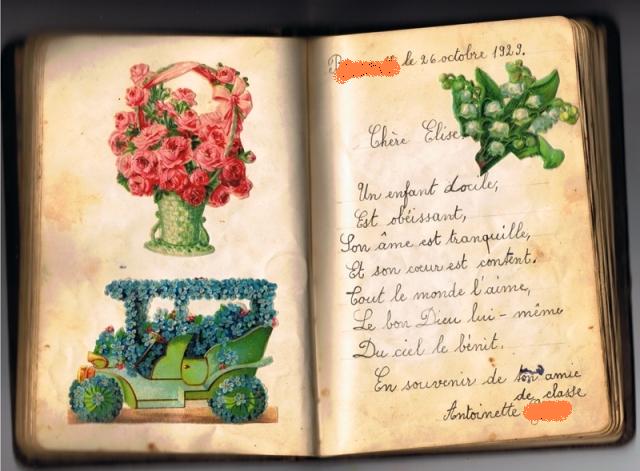 le 26 octobre 1929.
Chère Elise
Un enfant docile,
Est obéissant,
Son âme est tranquille,
Et son cœur est content.
Tout le monde l'aime,
Le bon Dieu lui-même
Du ciel le bénit.
En souvenir de ton amie
de classe
Antoinette